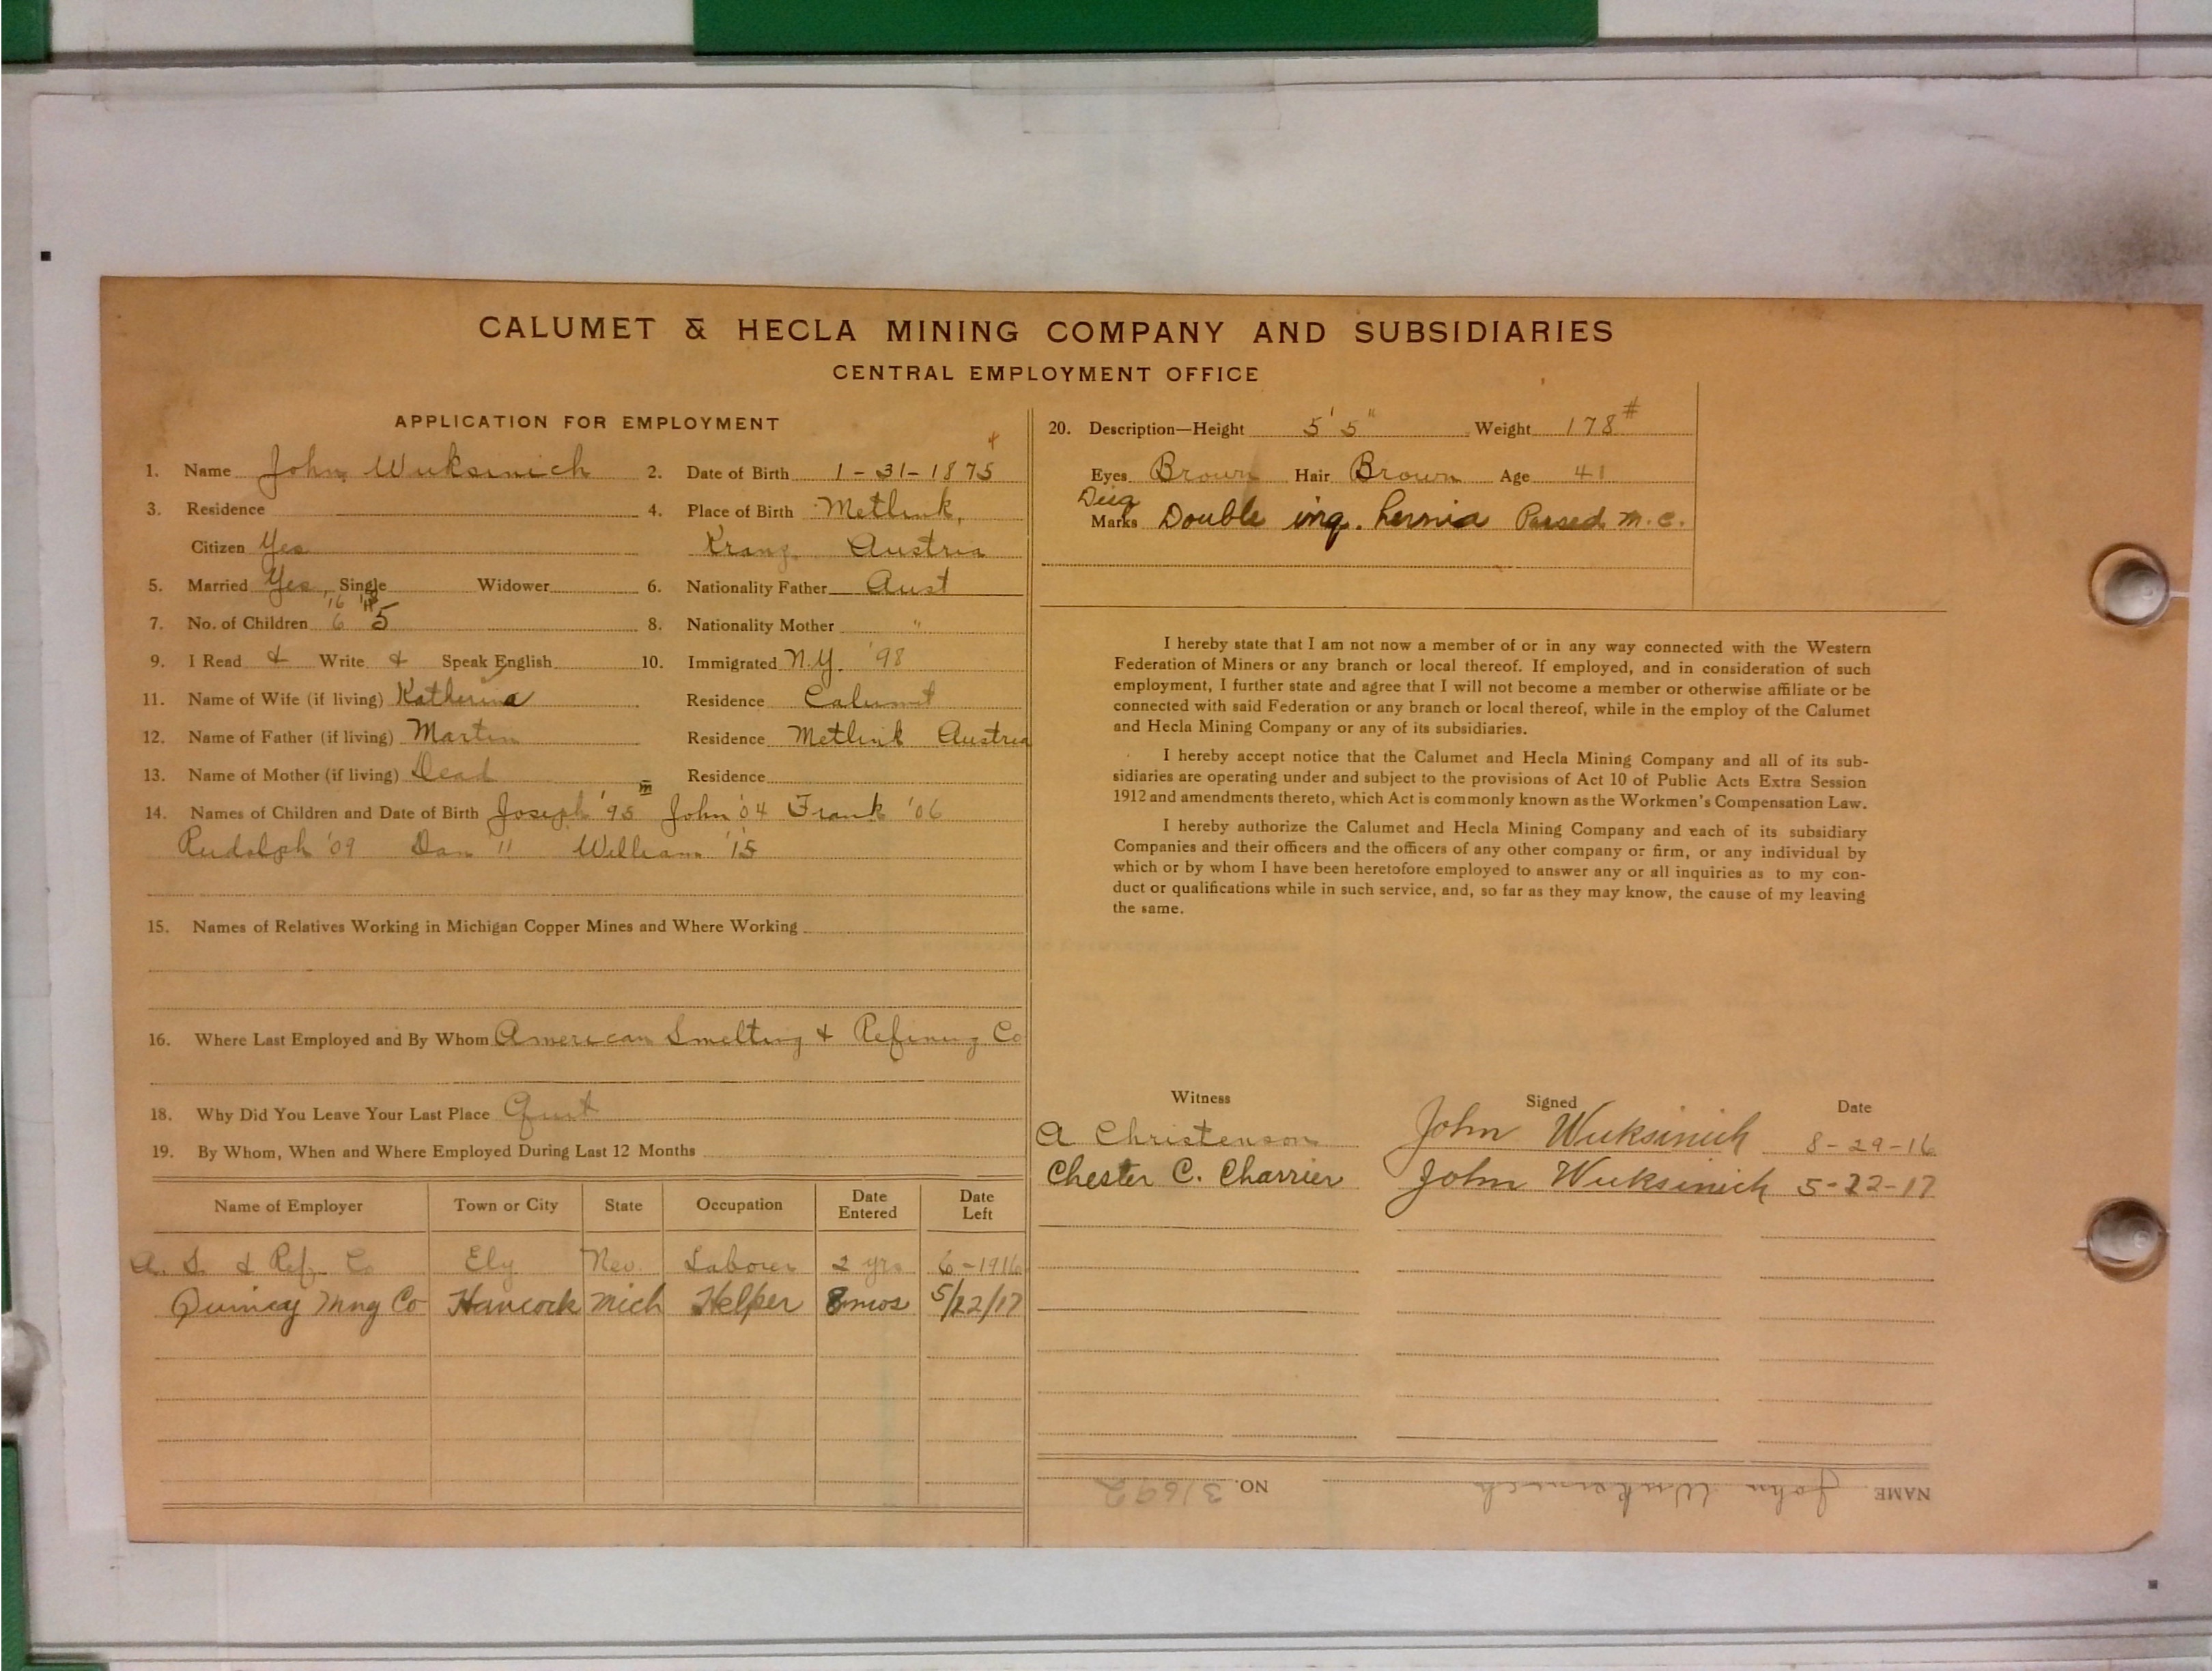 CALUMET & HECLA MINING COMPANY AND SUBSIDIARIES
CENTRAL EMPLOYMENT OFFICE
APPLICATION FOR EMPLOYMENT
4
1. Name John Wuksinich 2. Date of Birth 1-31-1875
3. Residence 4. Place of Birth Metlink,
Citizen Yes Austria
5. Married Yes, Single Widower 6. Nationality Father Aust
'16
7. No. of Children 6 5 8. Nationality Mother "
9. I Read & Write & Speak English 10. Immigrated N.Y. '98
11. Name of Wife (if living) Katherina Residence Calumet
12. Name of Father (if living) Martin Residence Metlink Austria
13. Name of Mother (if living) Dead Residence
m
14. Names of Children and Date of Birth Joseph '95 John '04 Frank '06
Rudolph '09 Dan '11 William '15
15. Names of Relatives Working in Michigan Copper Mines and Where Working
16. Where Last Employed and By Whom American Smelting & Refining Co
18. Why Did You Leave Your Last Place Quit
19. By Whom, When and Where Employed During Last 12 Months
Name of Employer Town or City State Occupation Date Entered Date Left
A. S. & Ref. Co Ely Nev. Laborer 2 yrs 6-1916
Quincy Mng Co Hancock Mich Helper 8 mos 5/22/17
20. Description—Height 5' 5" Weight 178#
Eyes Brown Hair Brown Age 41
Marks Double ing. hernia Passed M.C.
I hereby state that I am not now a member of or in any way connected with the Western
Federation of Miners or any branch or local thereof. If employed, and in consideration of such
employment, I further state and agree that I will not become a member or otherwise affiliate or be
connected with said Federation or any branch or local thereof, while in the employ of the Calumet
and Hecla Mining Company or any of its subsidiaries.
I hereby accept notice that the Calumet and Hecla Mining Company and all of its sub-
sidiaries are operating under and subject to the provisions of Act 10 of Public Acts Extra Session
1912 and amendments thereto, which Act is commonly known as the Workmen's Compensation Law.
I hereby authorize the Calumet and Hecla Mining Company and each of its subsidiary
Companies and their officers and the officers of any other company or firm, or any individual by
which or by whom I have been heretofore employed to answer any or all inquiries as to my con-
duct or qualifications while in such service, and, so far as they may know, the cause of my leaving
the same.
Witness Signed Date
A Christenson John Wuksinich 8-29-16
Chester C. Charrier John Wuksinich 5-22-17
NAME John Wuksinich NO. 31692